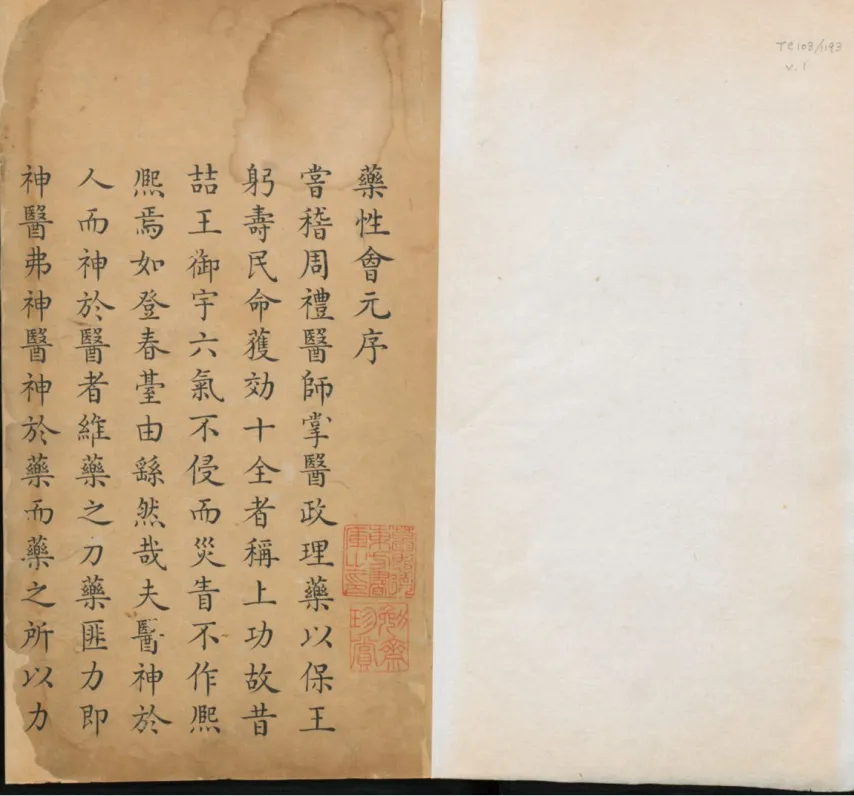 TC103/1193
v.1
藥性會元序
嘗稽周禮醫師掌醫政理藥以保王
躬壽民命獲効十全者稱上功故昔
喆王御宇六氣不侵而災眚不作熈
熈焉如登春臺由繇然哉夫醫神於
人而神於醫者維藥之刀藥匪力即
神醫弗神醫神於藥而藥之所以力
勉齋
珍賞